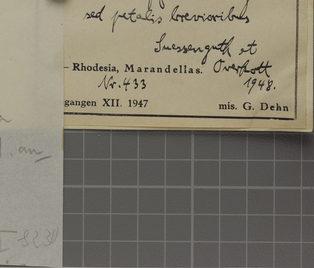 sed petalis brevioribus
Suessenguth et
– Rhodesia, Marandellas. Overkott
Nr. 433 1948.
gangen XII. 1947 mis. G. Dehn
. an